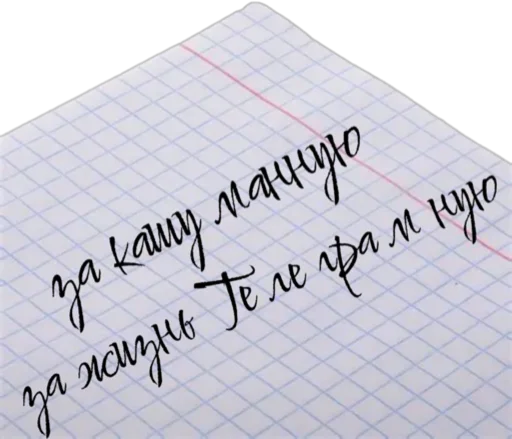 за кашу манную
за жизнь Телеграмную